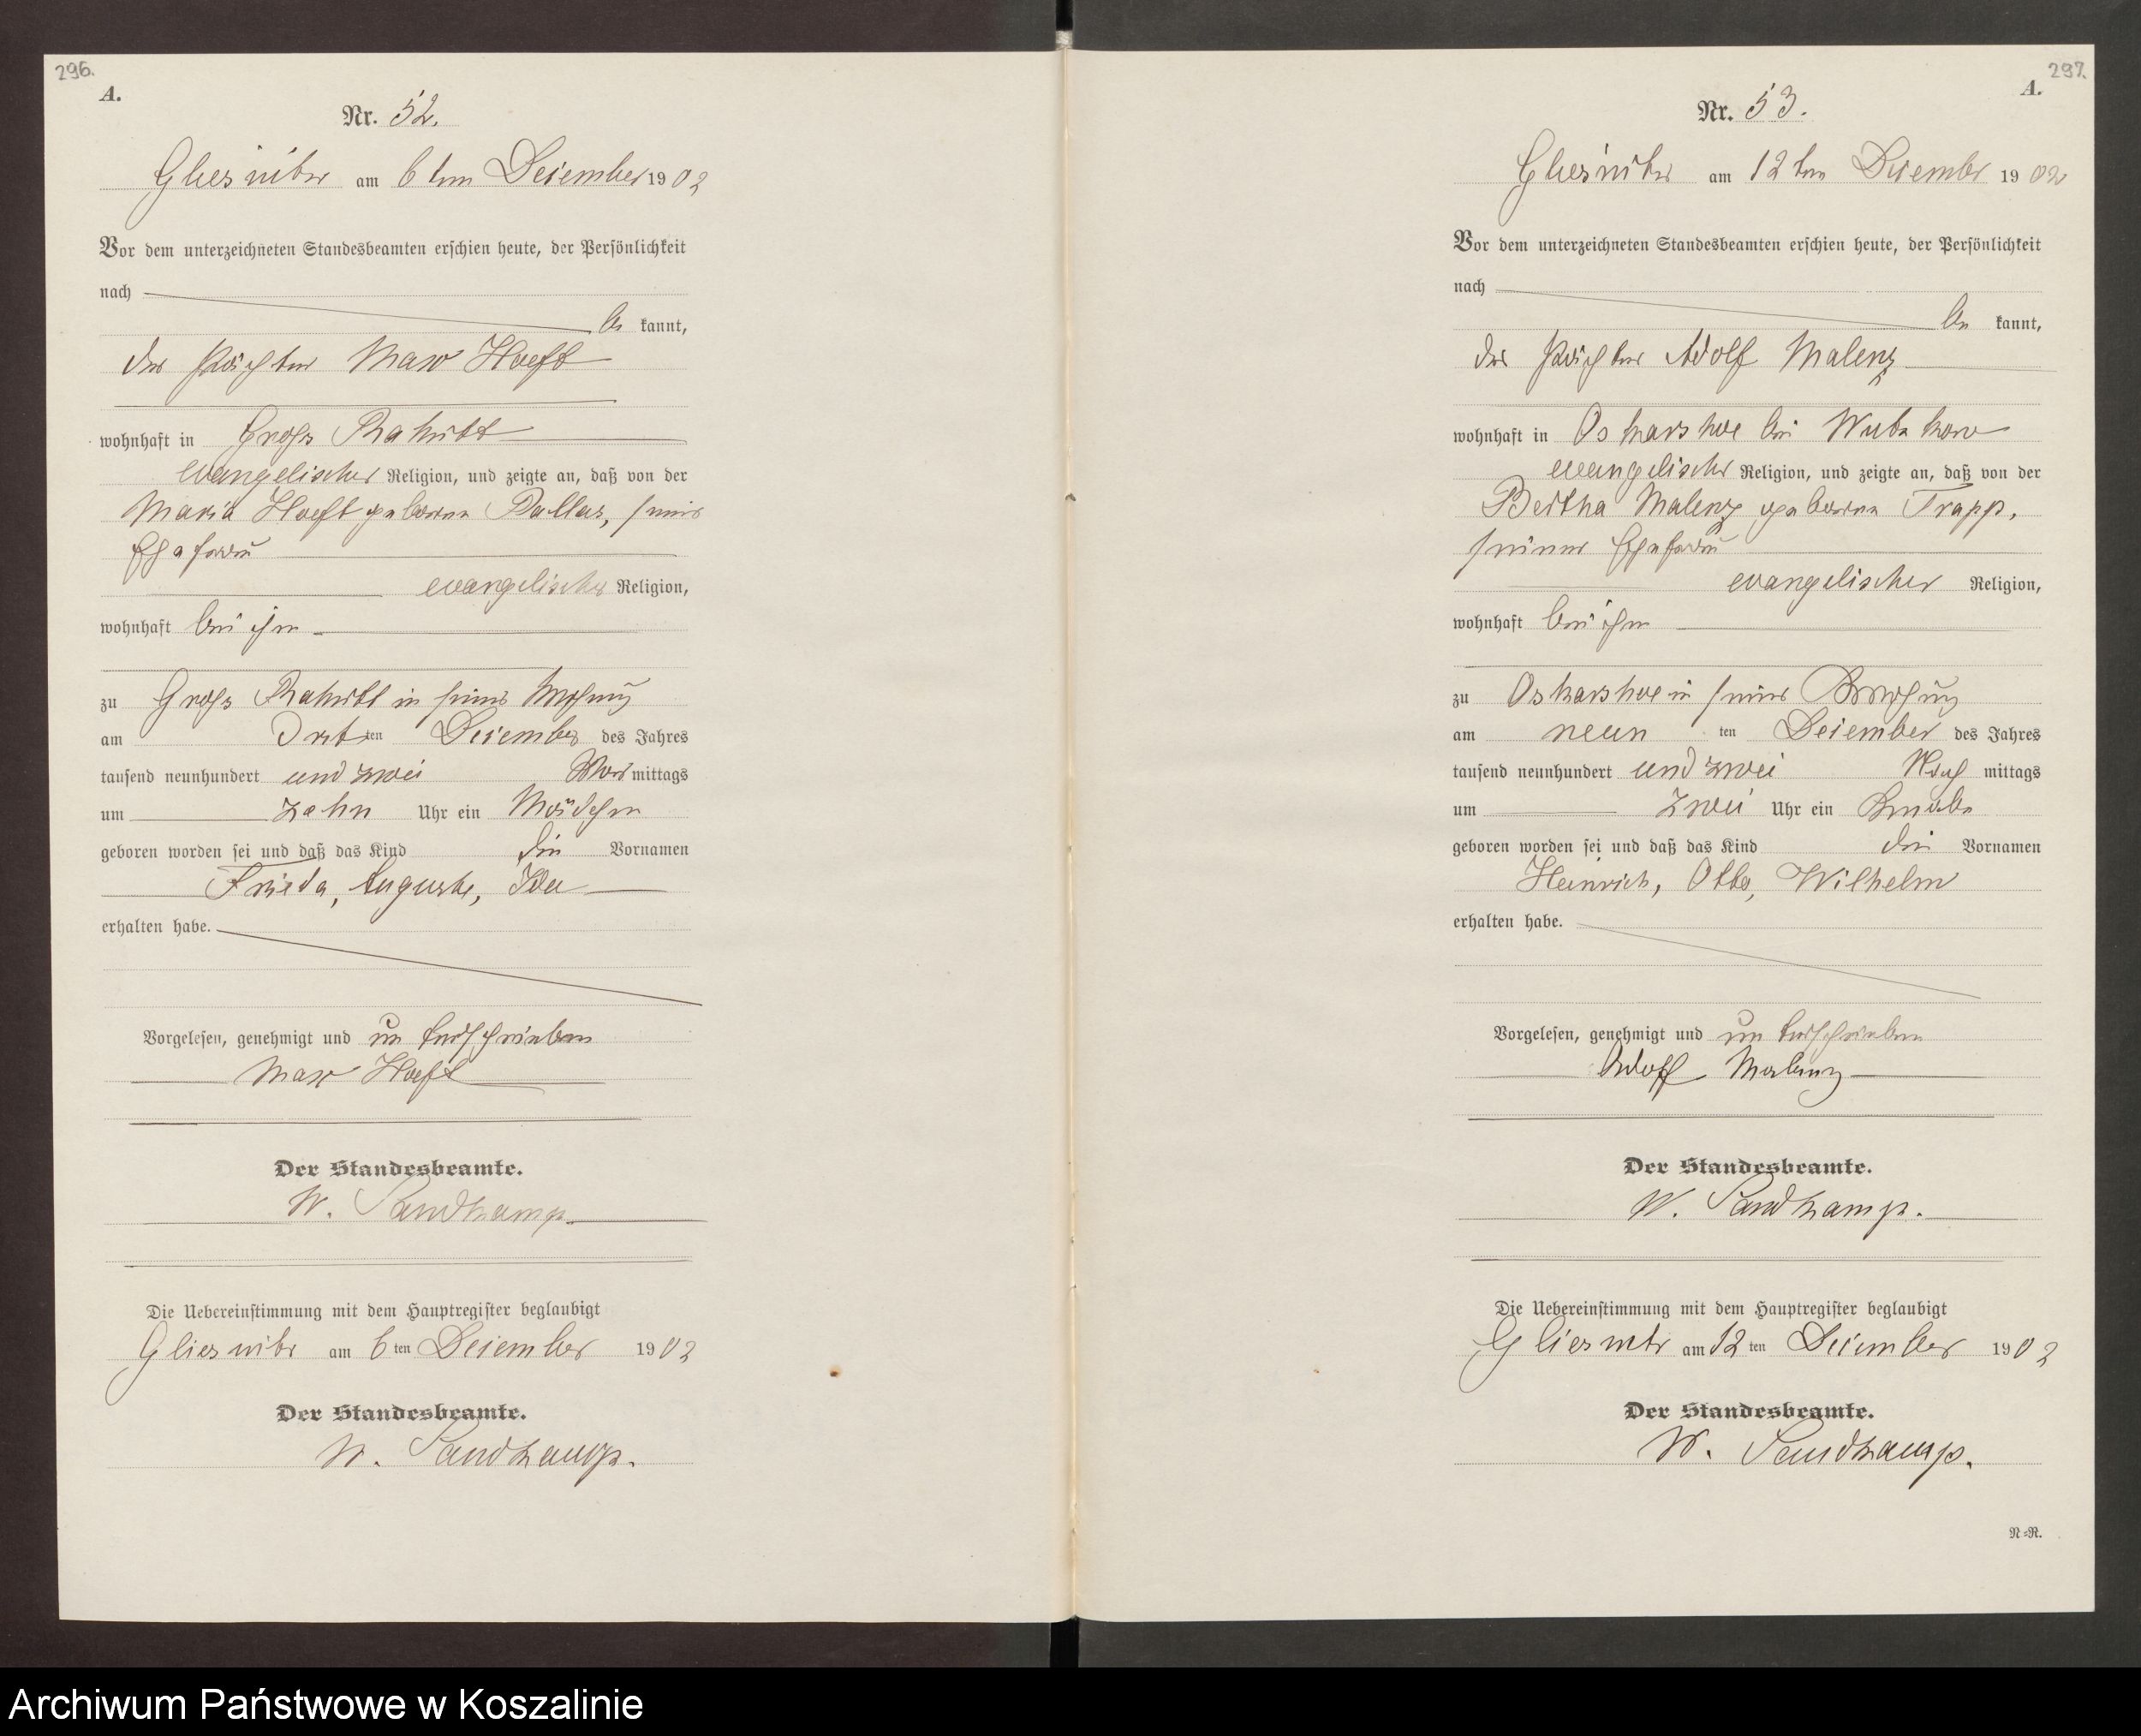 296.
A.
Nr. 52.
Gliesnitz am 6ten Dezember 1902
Vor dem unterzeichneten Standesbeamten erschien heute, der Persönlichkeit
nach
be kannt,
der Pächter Max Hoeft
wohnhaft in Gross Rakitt
evangelischer Religion, und zeigte an, daß von der
Maria Hoeft geborene Dallas, seiner
Ehefrau
evangelischer Religion,
wohnhaft bei ihm
zu Gross Rakitt in seiner Wohnung
am Drit ten Dezember des Jahres
tausend neunhundert und zwei Vor mittags
um zehn Uhr ein Mädchen
geboren worden sei und daß das Kind die Vornamen
Frieda, Auguste, Ida
erhalten habe.
Vorgelesen, genehmigt und unterschrieben
Max Hoeft
Der Standesbeamte.
W. Sandkamp.
Die Uebereinstimmung mit dem Hauptregister beglaubigt
Gliesnitz am 6 ten Dezember 1902
Der Standesbeamte.
W. Sandkamp.
297.
A.
Nr. 53.
Gliesnitz am 12ten Dezember 1902
Vor dem unterzeichneten Standesbeamten erschien heute, der Persönlichkeit
nach
be kannt,
der Pächter Adolf Malenz
wohnhaft in Oskarshoe bei
evangelischer Religion, und zeigte an, daß von der
Bertha Malenz geborene Trapp,
seiner Ehefrau
evangelischer Religion,
wohnhaft bei ihm
zu Oskarshoe in seiner Wohnung
am neun ten Dezember des Jahres
tausend neunhundert und zwei Nach mittags
um zwei Uhr ein Knabe
geboren worden sei und daß das Kind die Vornamen
Heinrich, Otto, Wilhelm
erhalten habe.
Vorgelesen, genehmigt und unterschrieben
Adolf Malenz
Der Standesbeamte.
W. Sandkamp.
Die Uebereinstimmung mit dem Hauptregister beglaubigt
Gliesnitz am 12 ten Dezember 1902
Der Standesbeamte.
W. Sandkamp.
N=R.
Archiwum Państwowe w Koszalinie